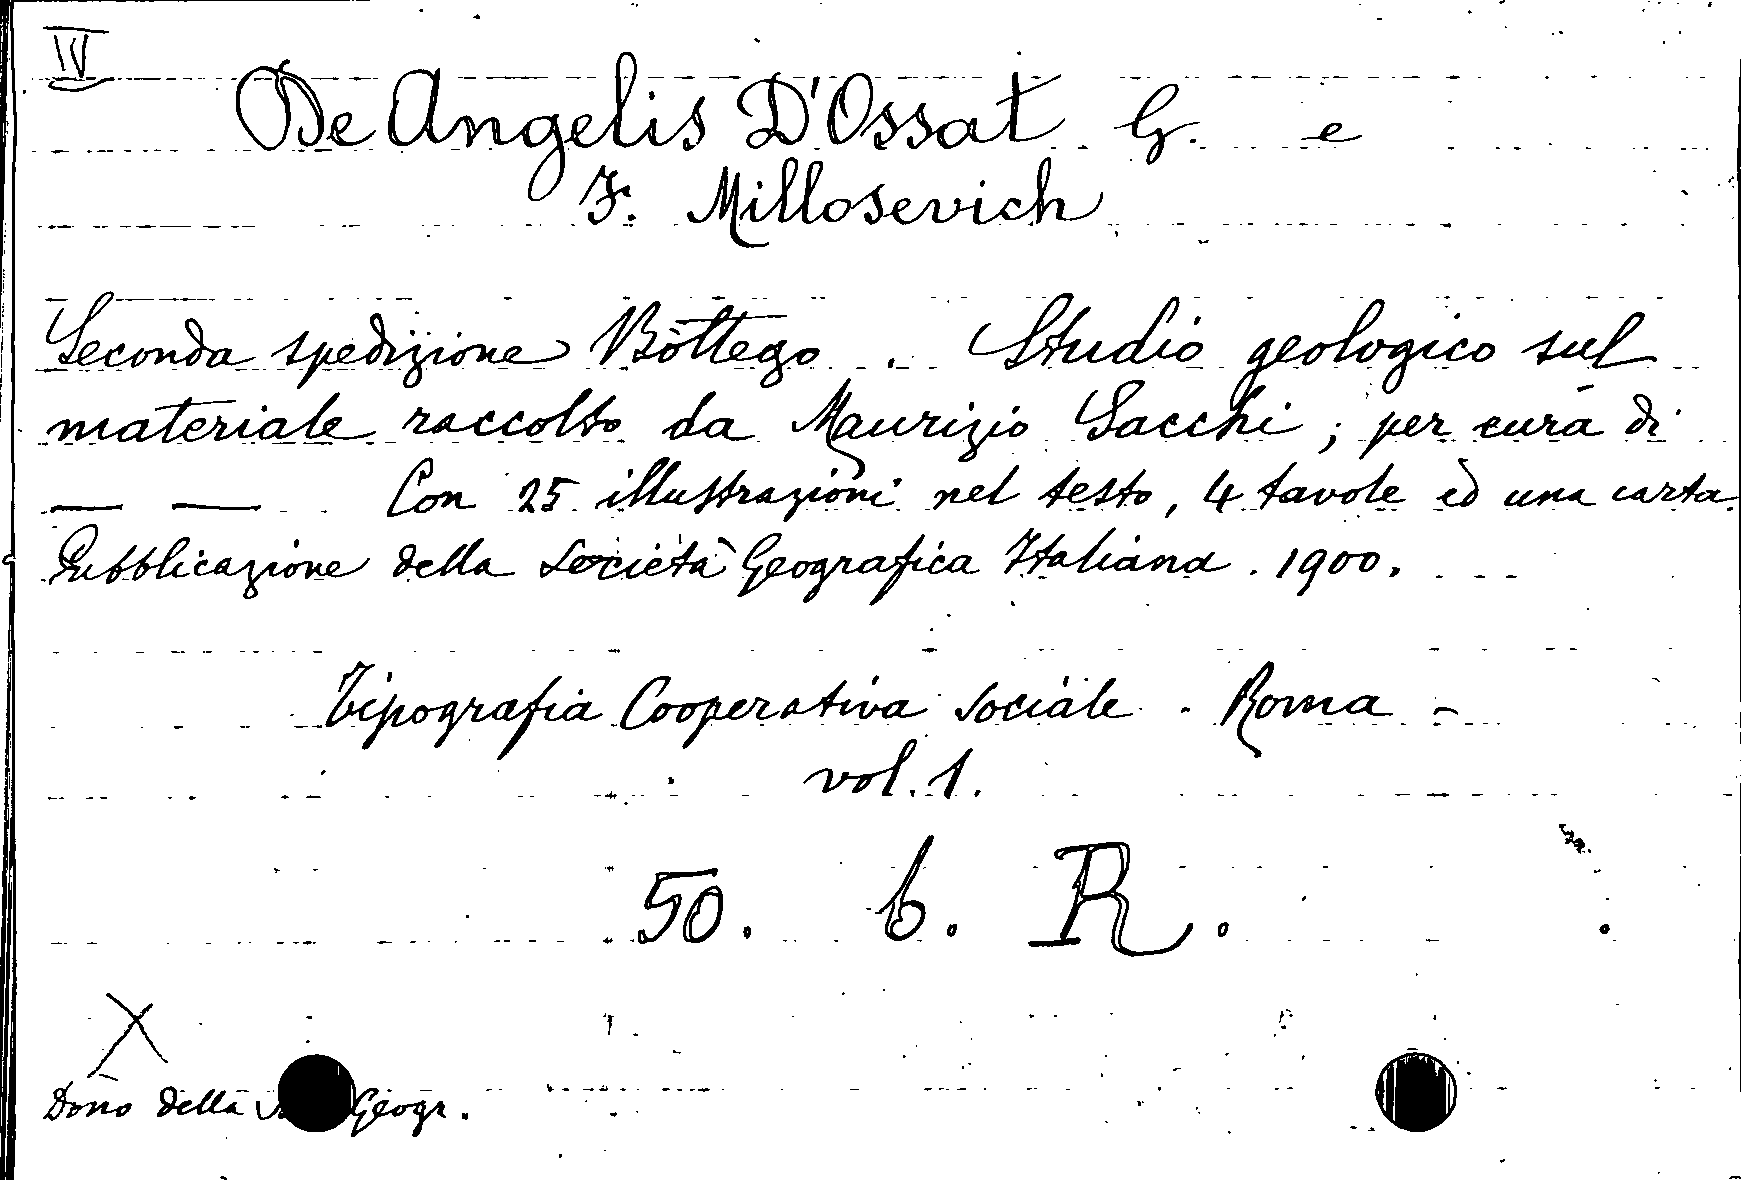 IV
De Angelis D'Ossat G. e
F. Millosevich
Seconda spedizione Bòttego. Studio geologico sul
materiale raccolto da Maurizio Sacchi; per cura di
— — Con 25 illustrazioni nel testo, 4 tavole ed una carta.
Pubblicazione della Società Geografica Italiana. 1900.
Tipografia Cooperativa sociale - Roma -
vol. 1.
50. b. R.
X
Dono della Geogr.